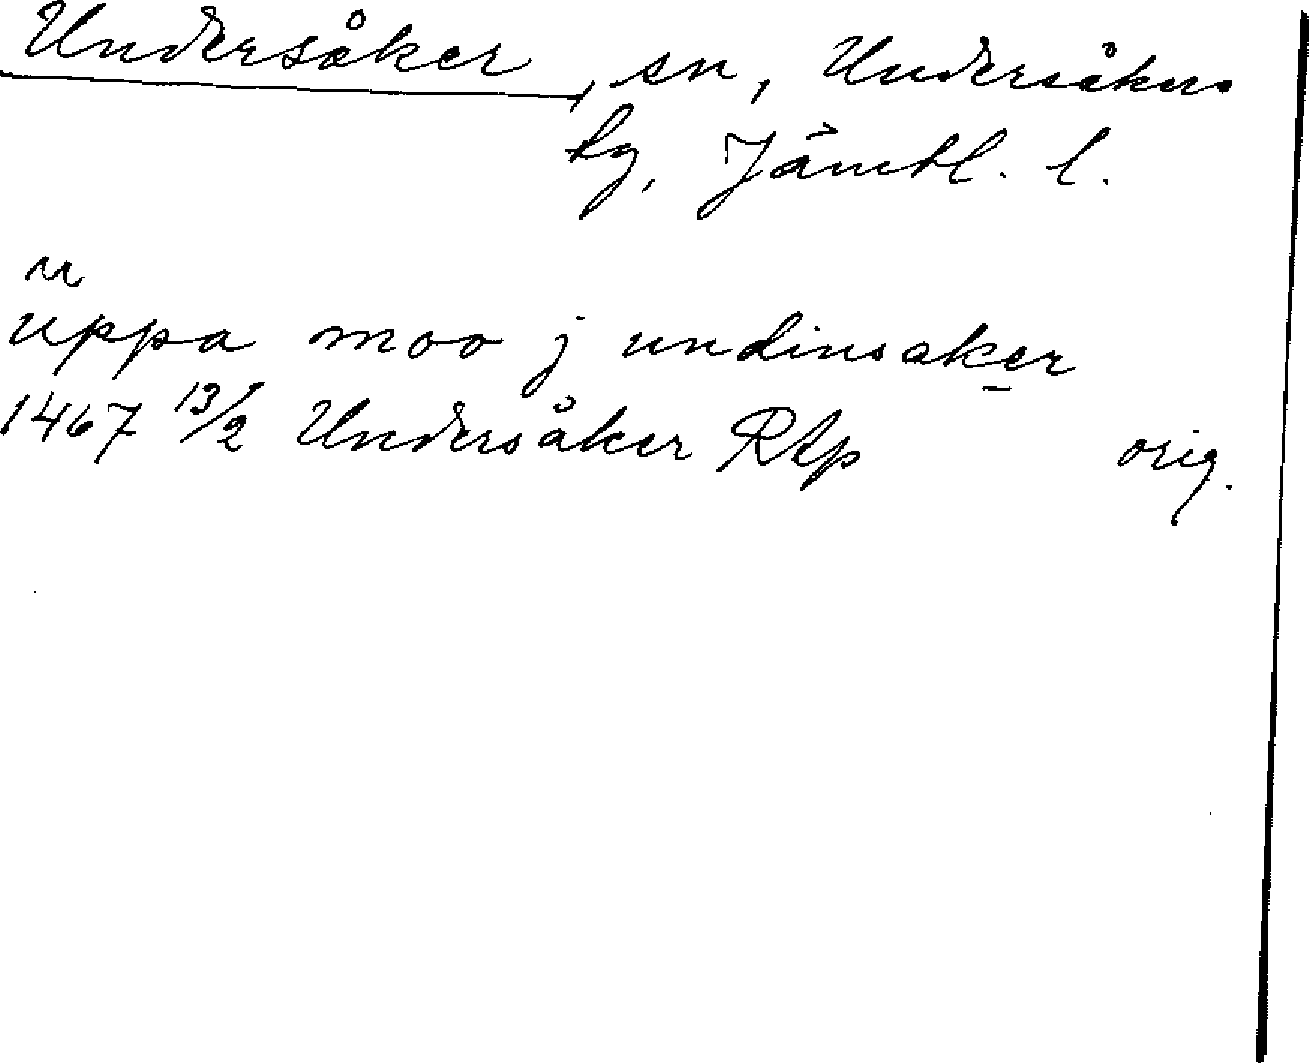 Undersåker, sn, Undersåkers
tg, Jämtl. l.
u
uppa moo j undinsaker
1467 13/2 Undersåker Rtp orig.